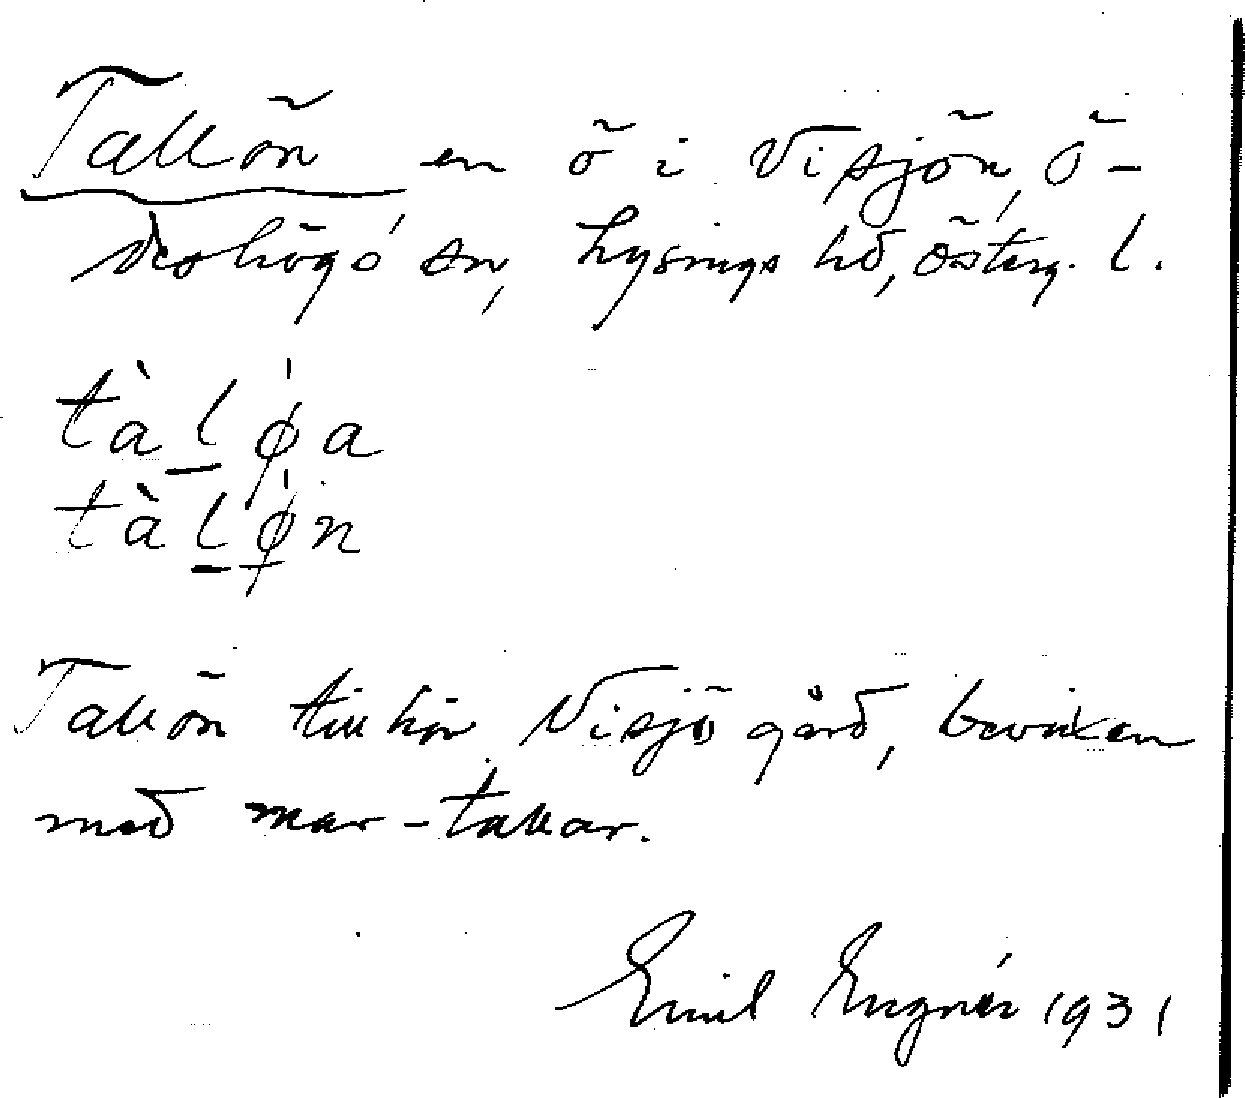 Tallön en ö i Visjön, Ö-
deshögs sn, Lysings hd, Österg. l.
tàlø̍a
tàlø̍n
Tallön tillhör Visjö gård, bevuxen
med mar-tallar.
Emil Engnér 1931